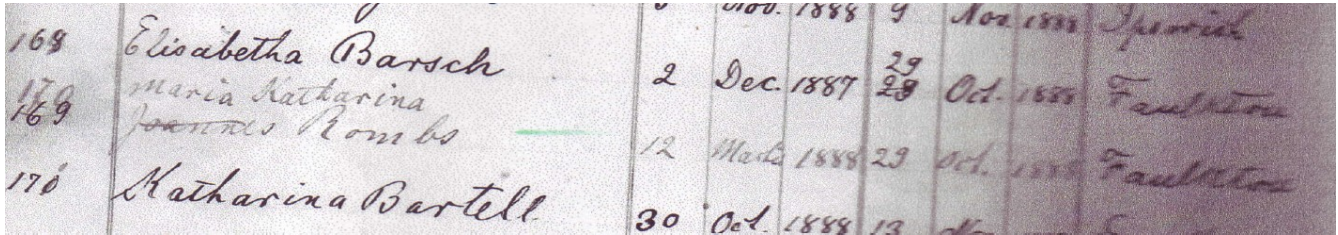 Nov. 1888 9 Nov. 1888 Ipswich
168 Elisabetha Barsch 2 Dec. 1887 29 Oct. 1888 Faulkton
Maria Katharina
169 Joannes Rombs 12 Mart. 1888 29 Oct. 1888 Faulkton
170 Katharina Bartell 30 Oct. 1888 13 Nov.